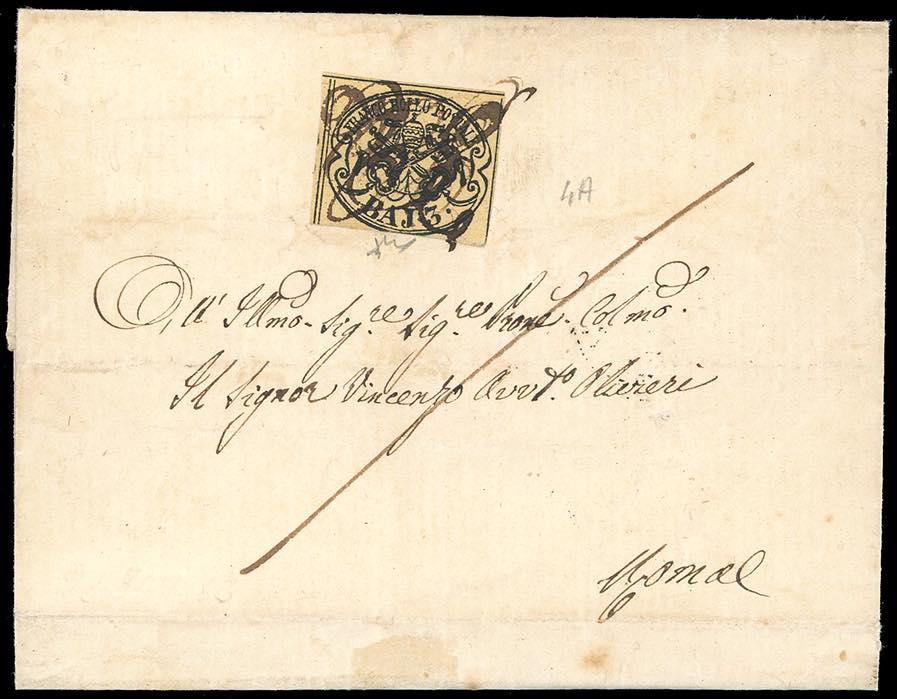 FRANCO BOLLO POSTALE
BAJ 3.
4A
All' Illmo. Sig.re Sig.re Prone. Colmo.
Il Signor Vincenzo Avvto. Olivieri
Roma